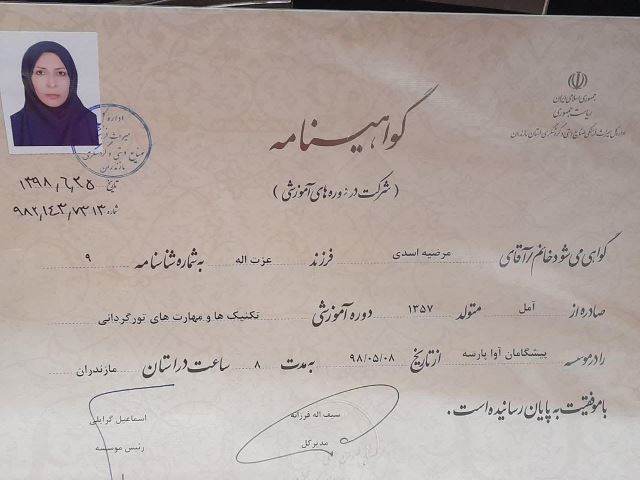 جمهوری اسلامی ایران
ریاست جمهوری
اداره کل میراث فرهنگی، صنایع دستی و گردشگری استان مازندران
گواهینامه
(شرکت در دوره های آموزشی)
اداره کل
میراث فر
صنایع دستی و گردشگری
مازندران
تاریخ ۱۳۹۸٫۶٫۲۵
شماره ۹۸۲٫۱۴۳٫۷۳۱۳
گواهی می شود خانم/آقای مرضیه اسدی فرزند عزت اله به شماره شناسنامه ۹
صادره از آمل متولد ۱۳۵۷ دوره آموزشی تکنیک ها و مهارت های تورگردانی
را در موسسه پیشگامان آوا پارسه از تاریخ ۹۸/۰۵/۰۸ به مدت ۸ ساعت در استان مازندران
با موفقیت به پایان رسانیده است.
سیف اله فرزانه
مدیرکل
اسماعیل گرایلی
رئیس موسسه